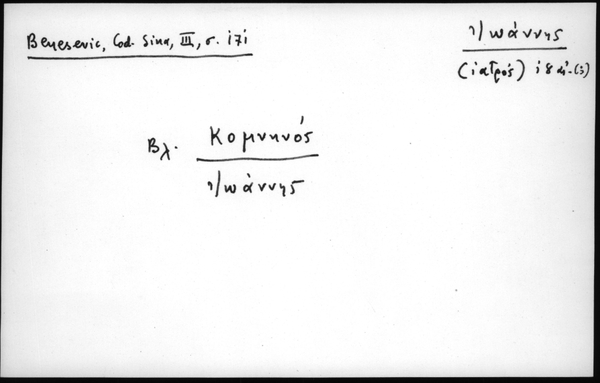 Benesevic, Cod. Sina, III, σ. 171
Ἰωάννης
(ἰατρός) 18 αἰ. (;)
Βλ. Κομνηνός
Ἰωάννης